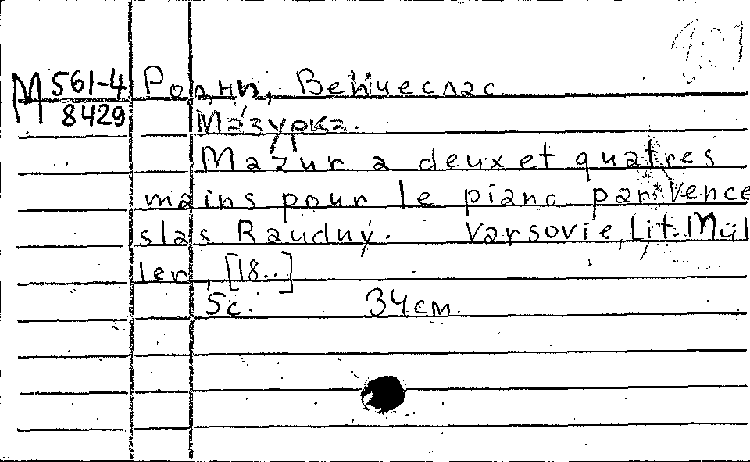 М 561-4
8429
Родни, Венчеслас
Мазурка.
Mazur a deux et quatres
mains pour le piano par Vence
slas Raudny. Varsovie, Lit. Mül
ler, [18..]
5с. 34см.